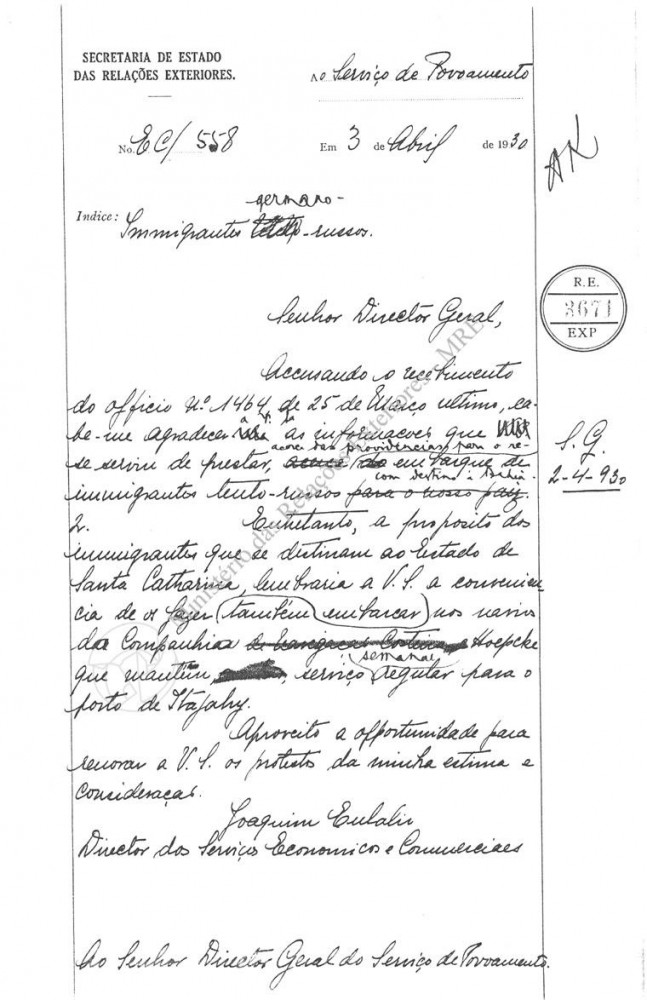 SECRETARIA DE ESTADO
DAS RELAÇÕES EXTERIORES.
Ao Serviço de Povoamento
No. EC/ 558
Em 3 de Abril de 1930
AK
germano-
Indice: Immigrantes teuto-russos.
R. E.
3671
EXP
Senhor Director Geral,
Accusando o recebimento
do officio nº 1464, de 25 de Março ultimo, ca-
be-me agradecer a V. S. as informações que
acerca das providencias para o re-
se serviu de prestar, acerca do embarque de
com destino à Bahia.
immigrantes teuto-russos para o nosso paiz.
S. G.
2-4-930
2. Entretanto, a proposito dos
immigrantes que se destinam ao Estado de
Santa Catharina, lembraria a V. S. a convenien-
cia de os fazer também embarcar nos navios
da Companhia de Navegação Costeira e Hoepcke
semanal
que mantém serviço regular para o
porto de Itajahy.
Aproveito a opportunidade para
renovar a V. S. os protestos da minha estima e
consideração.
Joaquim Eulalio
Director dos Serviços Economicos e Commerciaes
Ao Senhor Director Geral do Serviço de Povoamento.
Ministério das Relações Exteriores - MRE